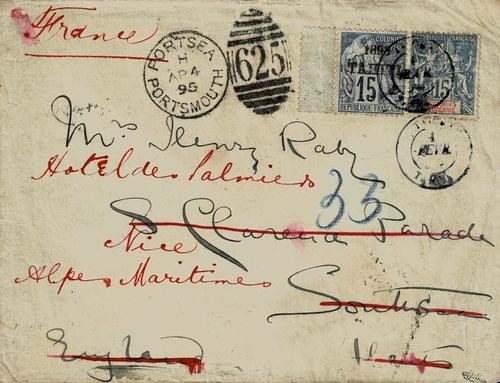 France
PORTSEA
H
AP 4
95
PORTSMOUTH
625
COLONIES
1893
TAHITI
15
REPUBLIQUE FRANCAISE
15
Mrs Henry Raby
Hotel des Palmiers
33
8 Clarence Parade
Nice
Alpes Maritimes
Southsea
England
Hants